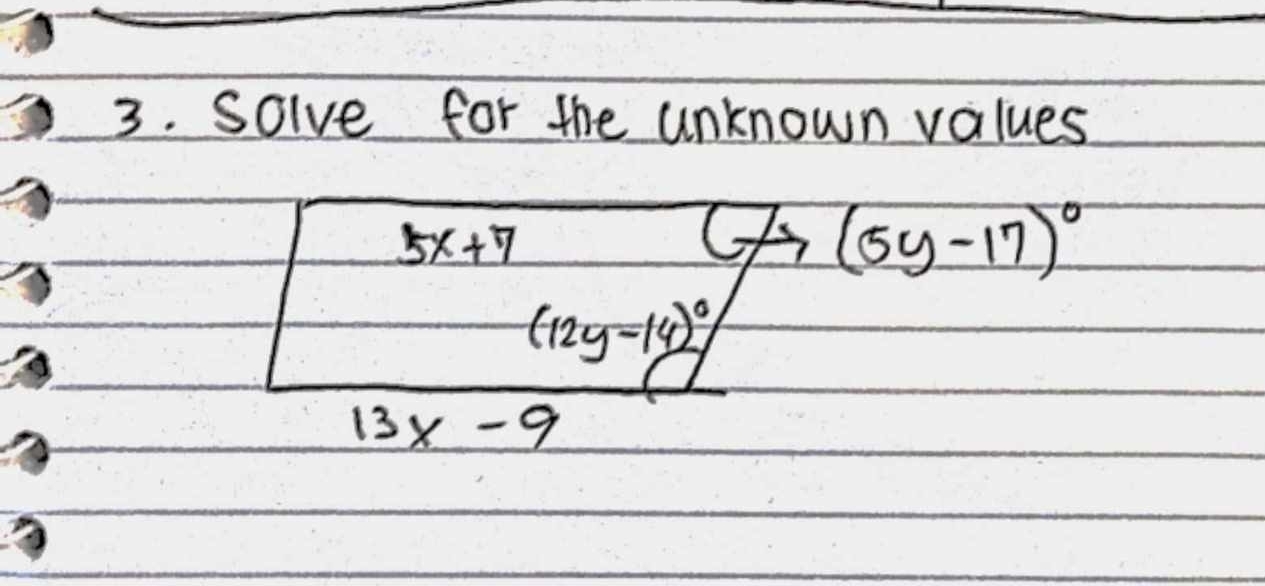 3. Solve for the unknown values
5x+7
(5y-17)°
(12y-14)°
13x -9